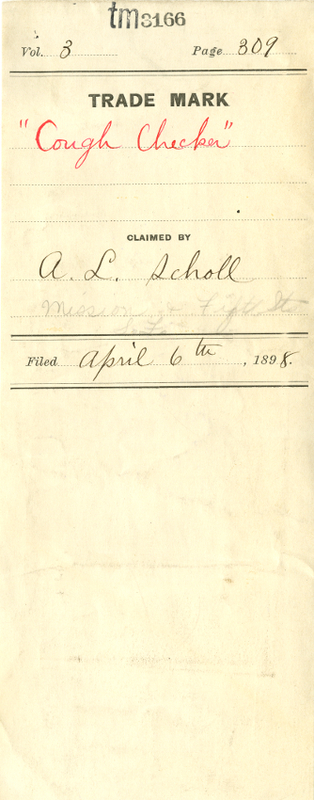 tm3166
Vol. 3 Page 309
TRADE MARK
"Cough Checker"
CLAIMED BY
A. L. Scholl
Mission & Fifth Sts
Filed April 6th, 1898.